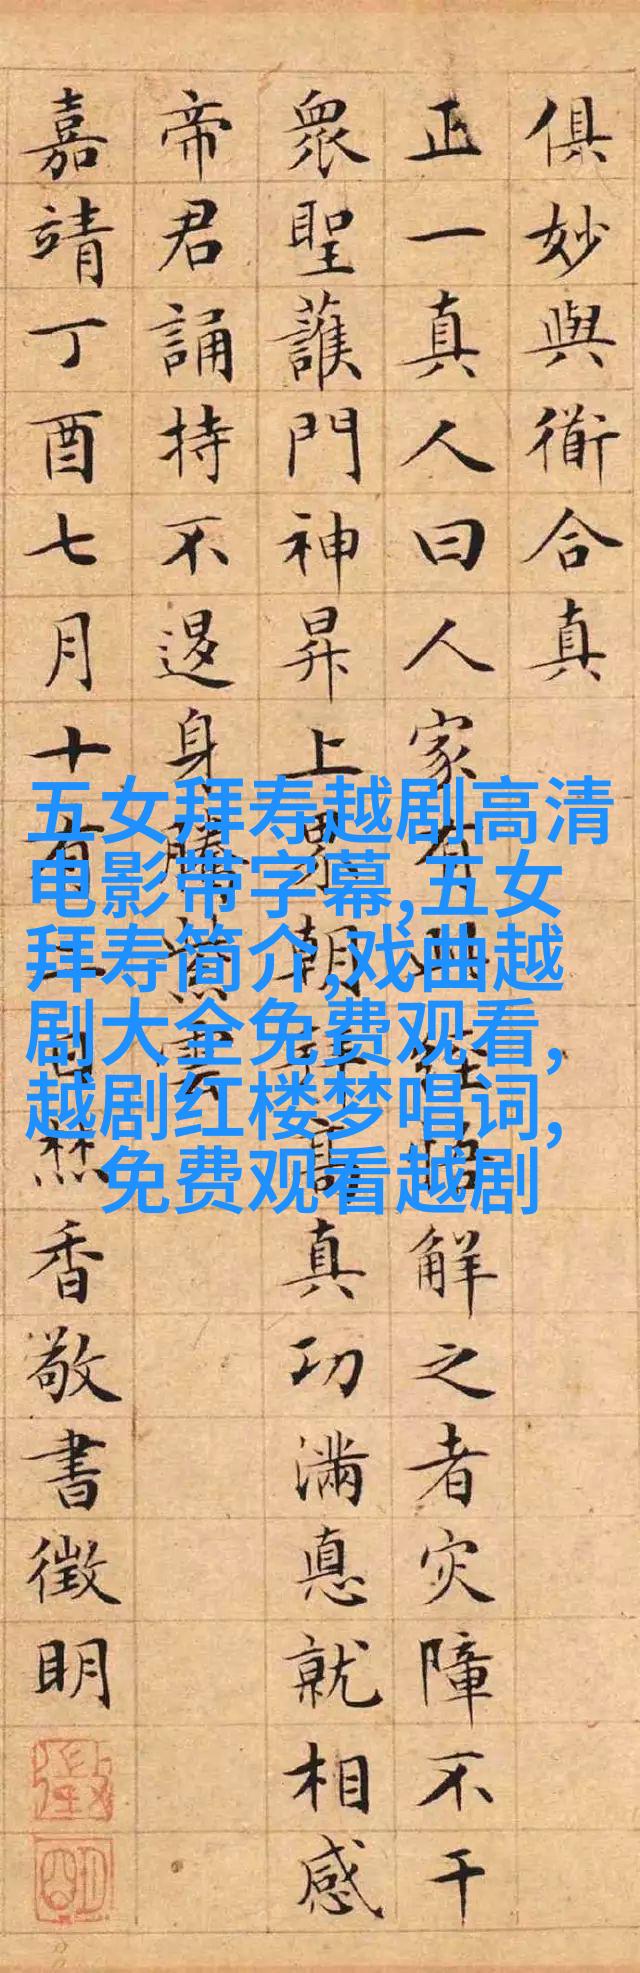 俱妙與衜合真
正一真人曰人家有經解之者灾障不干
眾聖護門神昇上界朝高真功滿悳就相感
帝君誦持不退身騰紫雲
嘉靖丁酉七月十有日焚香敬書徵明
徵
明
五女拜寿越剧高清
电影带字幕,五女
拜寿简介,戏曲越
剧大全免费观看,
越剧红楼梦唱词,
免费观看越剧